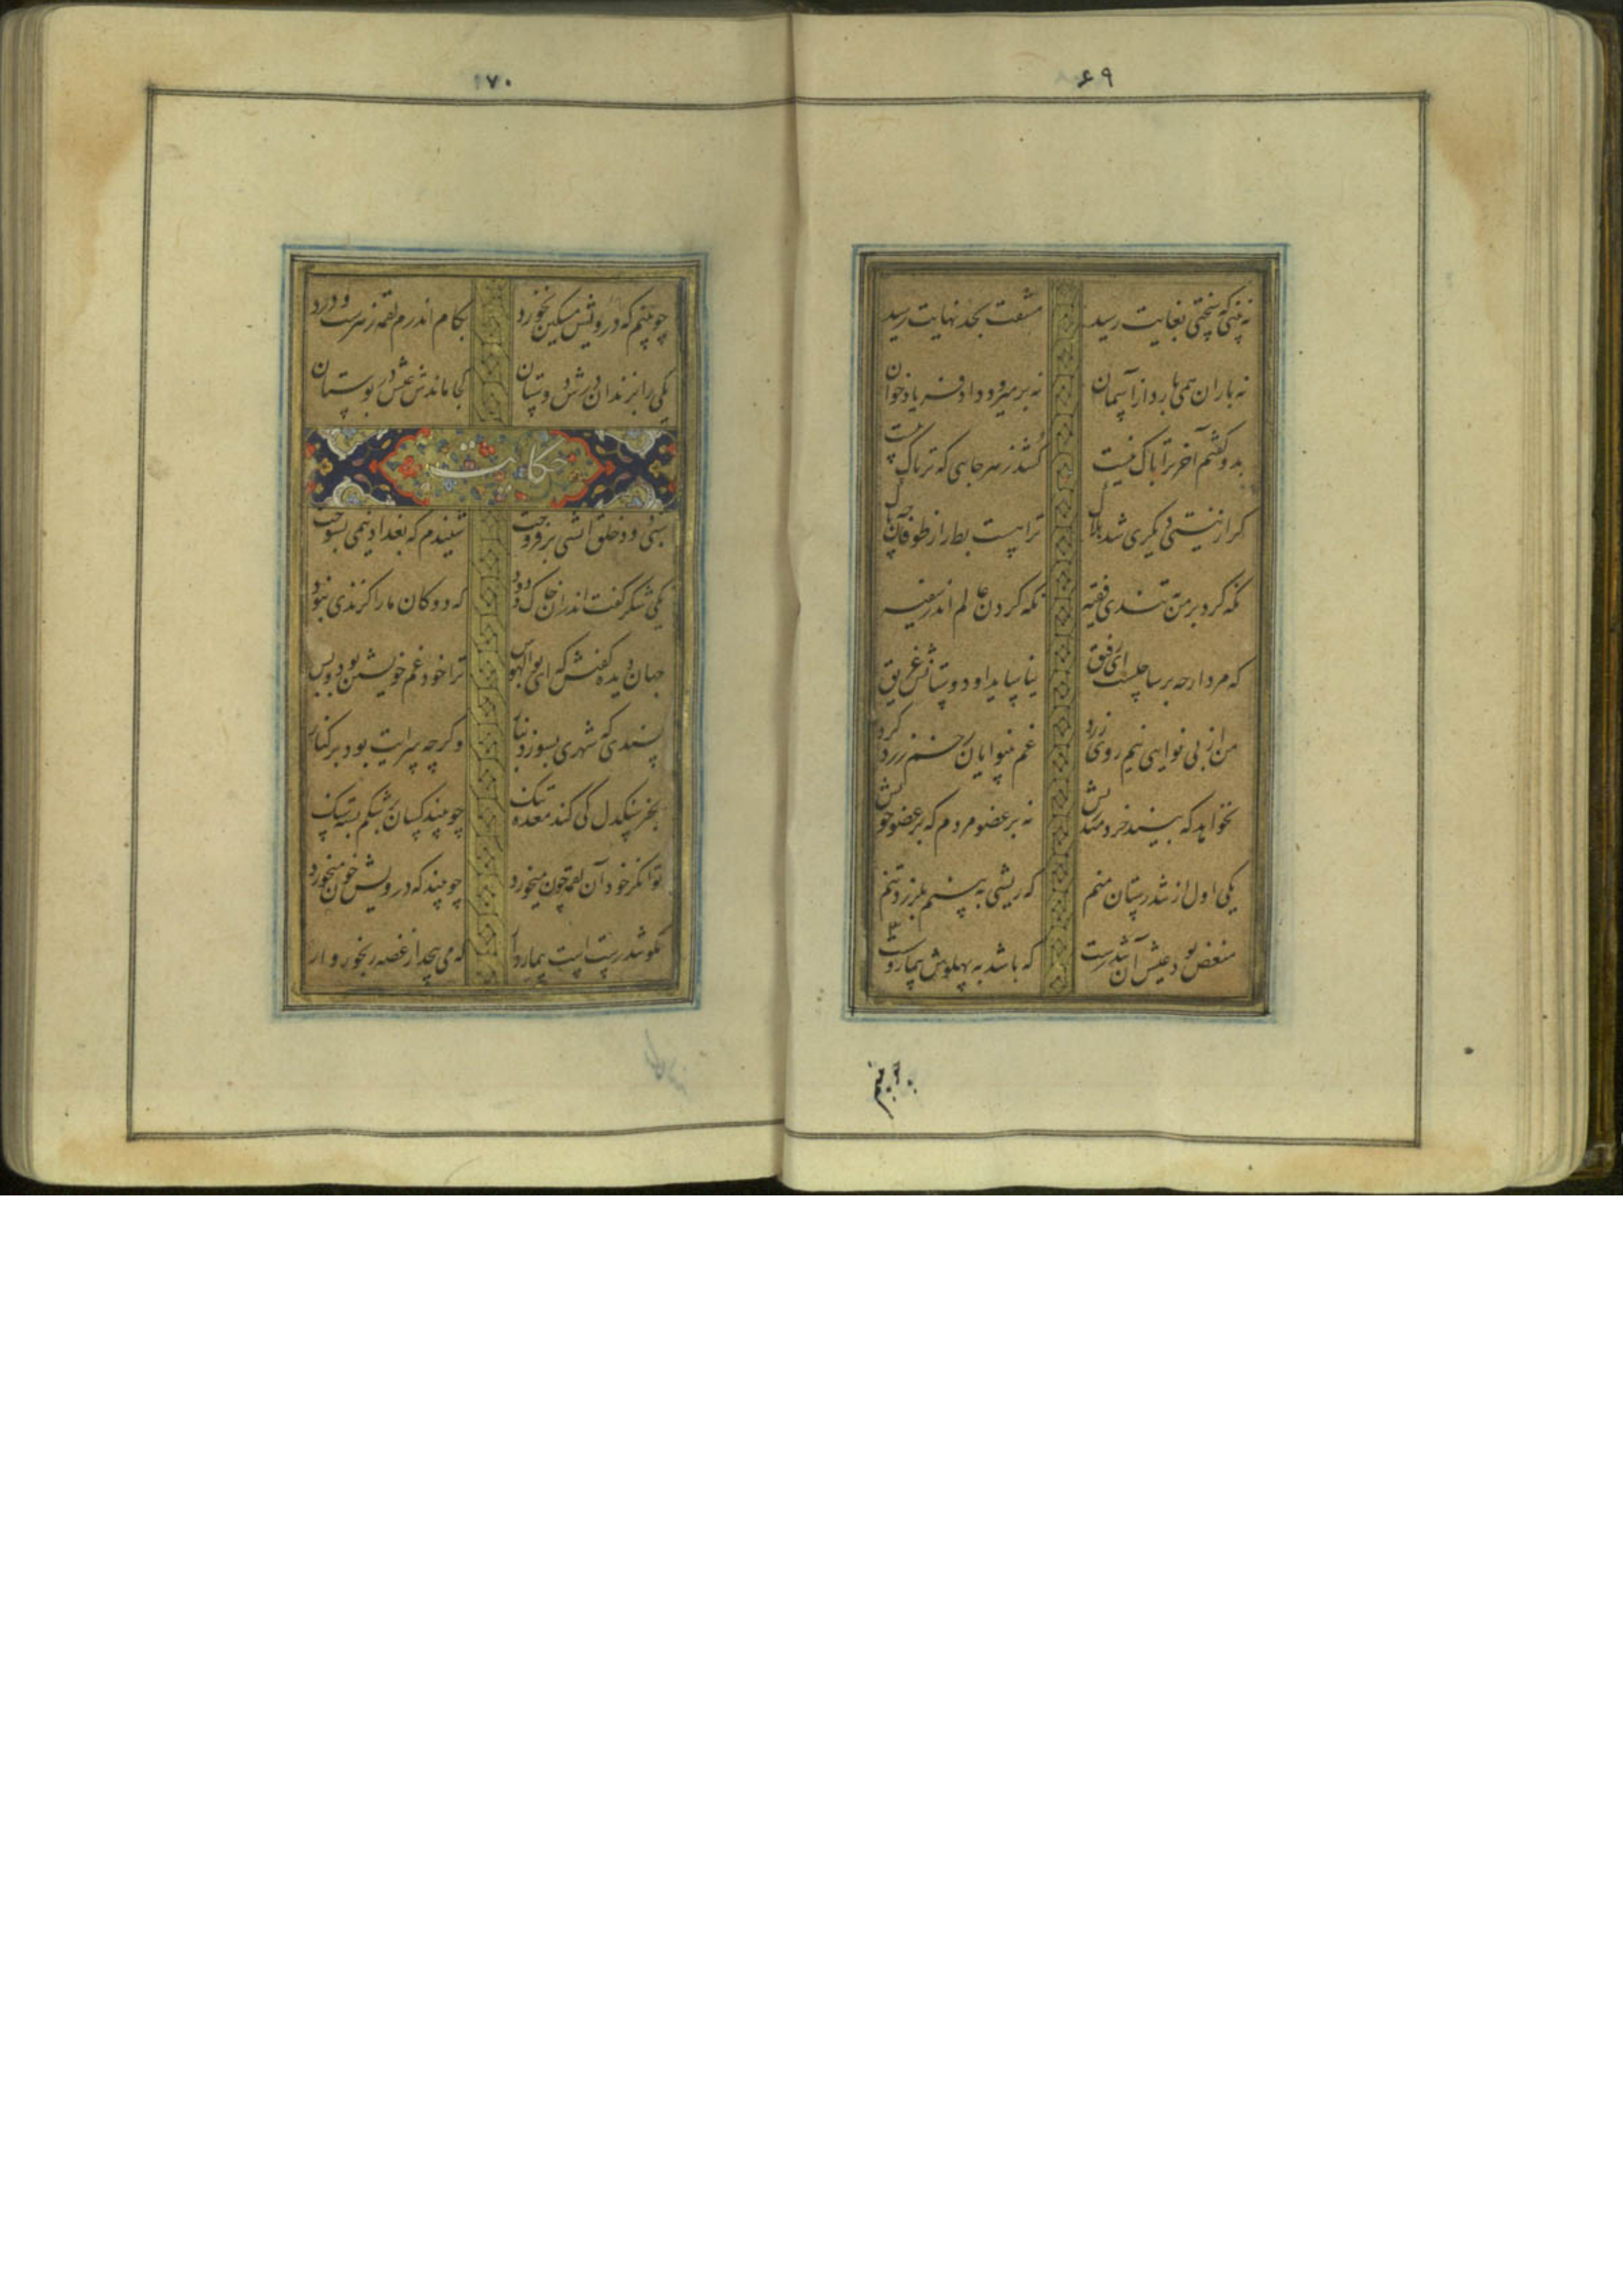 ۶۹
نه بینی که سختی بغایت رسید مشقت بحد نهایت رسید
نه باران همی بارد از آسمان نه بر میرود داد فریاد خوان
بدو گفتم آخر ترا باک نیست کُشد زهر جایی که تریاک نیست
گر از نیستی دیگری شد هلاک ترا هست بط را ز طوفان چه باک
نگه کرد بر من به تندی فقیه نگه کردن عالم اندر سفیه
که مرد ارچه بر ساحلست ای رفیق نیاساید و دوستانش غریق
من از بی نوایی نیم روی زرد غم بینوایان رخم زرد کرد
نخواهد که بیند خردمند ریش نه بر عضو مردم که بر عضو خویش
یکی اول از تندرستان منم که ریشی به بینم بلرزد تنم
منغص بود عیش آن تندرست که باشد به پهلوش بیمار سست
چو بینم
۷۰
چو بینم که درویش مسکین نخورد بکام اندرم لقمه زهرست و درد
یکی را بزندان درش دوستان کجا ماندش عیش در بوستان
حکایت
شبی دود خلق آتشی بر فروخت شنیدم که بغداد نیمی بسوخت
یکی شکر گفت اندران خاک و دود که دوکان ما را گزندی نبود
جهان دیده گفتش که ای بوالهوس ترا خود غم خویشتن بود و بس
پسندی که شهری بسوزد بنار وگرچه سرایت بود بر کنار
بجز سنگدل کی کند معده تنگ چو بیند کسان بر شکم بسته سنگ
توانگر خود آن لقمه چون میخورد چو بیند که درویش خون میخورد
مگو تندرست است بیماردار که می پیچد از غصه رنجوروار